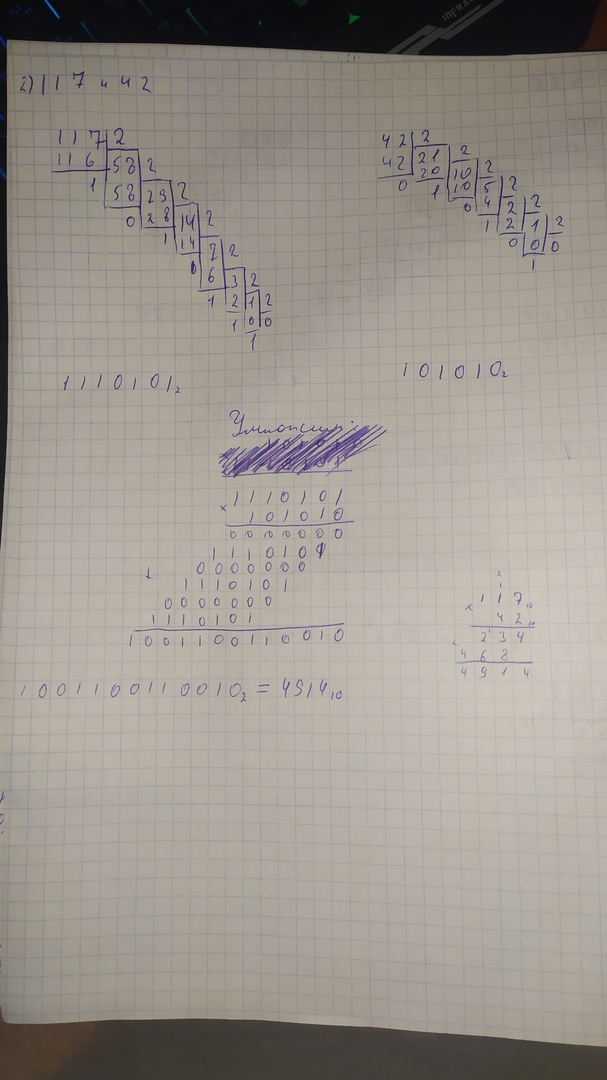 2) 117 и 42
117 2
116 58 2
1 58 29 2
0 28 14 2
1 14 7 2
0 6 3 2
1 2 1 2
1 0 0
1
42 2
42 21 2
0 20 10 2
1 10 5 2
0 4 2 2
1 2 1 2
0 0 0
1
1110101₂
101010₂
× 1110101
101010
0000000
1110101
+ 0000000
1110101
0000000
1110101
1001100110010
2
1
× 117₁₀
42₁₀
234
+
468
4914
1001100110010₂ = 4914₁₀